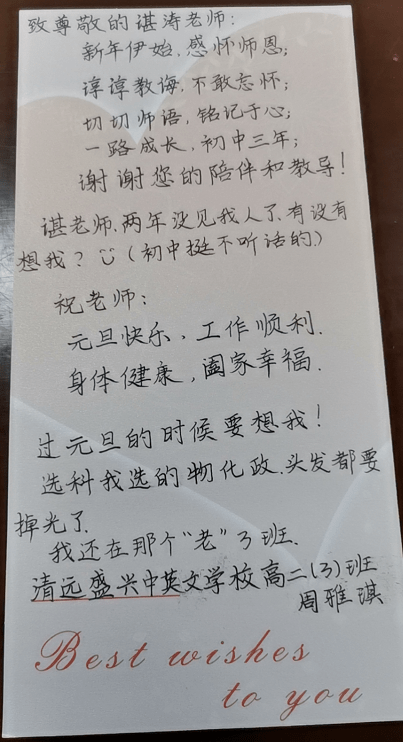 致尊敬的谌涛老师：
新年伊始，感怀师恩；
谆谆教诲，不敢忘怀；
切切师语，铭记于心；
一路成长，初中三年；
谢谢您的陪伴和教导！
谌老师，两年没见我人了，有没有
想我？（初中挺不听话的）
祝老师：
元旦快乐，工作顺利．
身体健康，阖家幸福．
过元旦的时候要想我！
选科我选的物化政，头发都要
掉光了．
我还在那个“老”3班．
清远盛兴中英文学校高二(3)班
周雅琪
Best wishes
to you